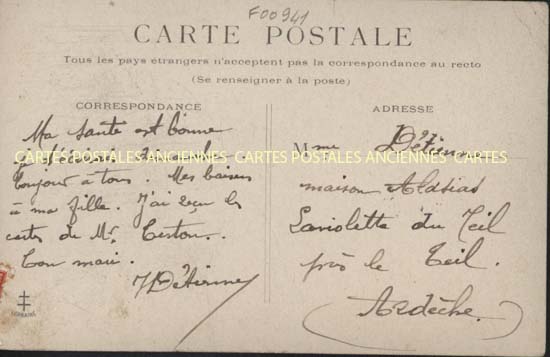 F00941
CARTE POSTALE
Tous les pays étrangers n'acceptent pas la correspondance au recto
(Se renseigner à la poste)
CORRESPONDANCE
Ma santé est bonne
CARTES POSTALES ANCIENNES CARTES POSTALES ANCIENNES CARTES
Toujour à tous. Mes baisers
à ma fille. J'ai reçu les
cartes de Mr. Teston.
Ton mari.
Détienne
LORRAINE
ADRESSE
Mme Détienne
maison Aldias
Laviolette du Teil
près le Teil.
(Ardèche.)